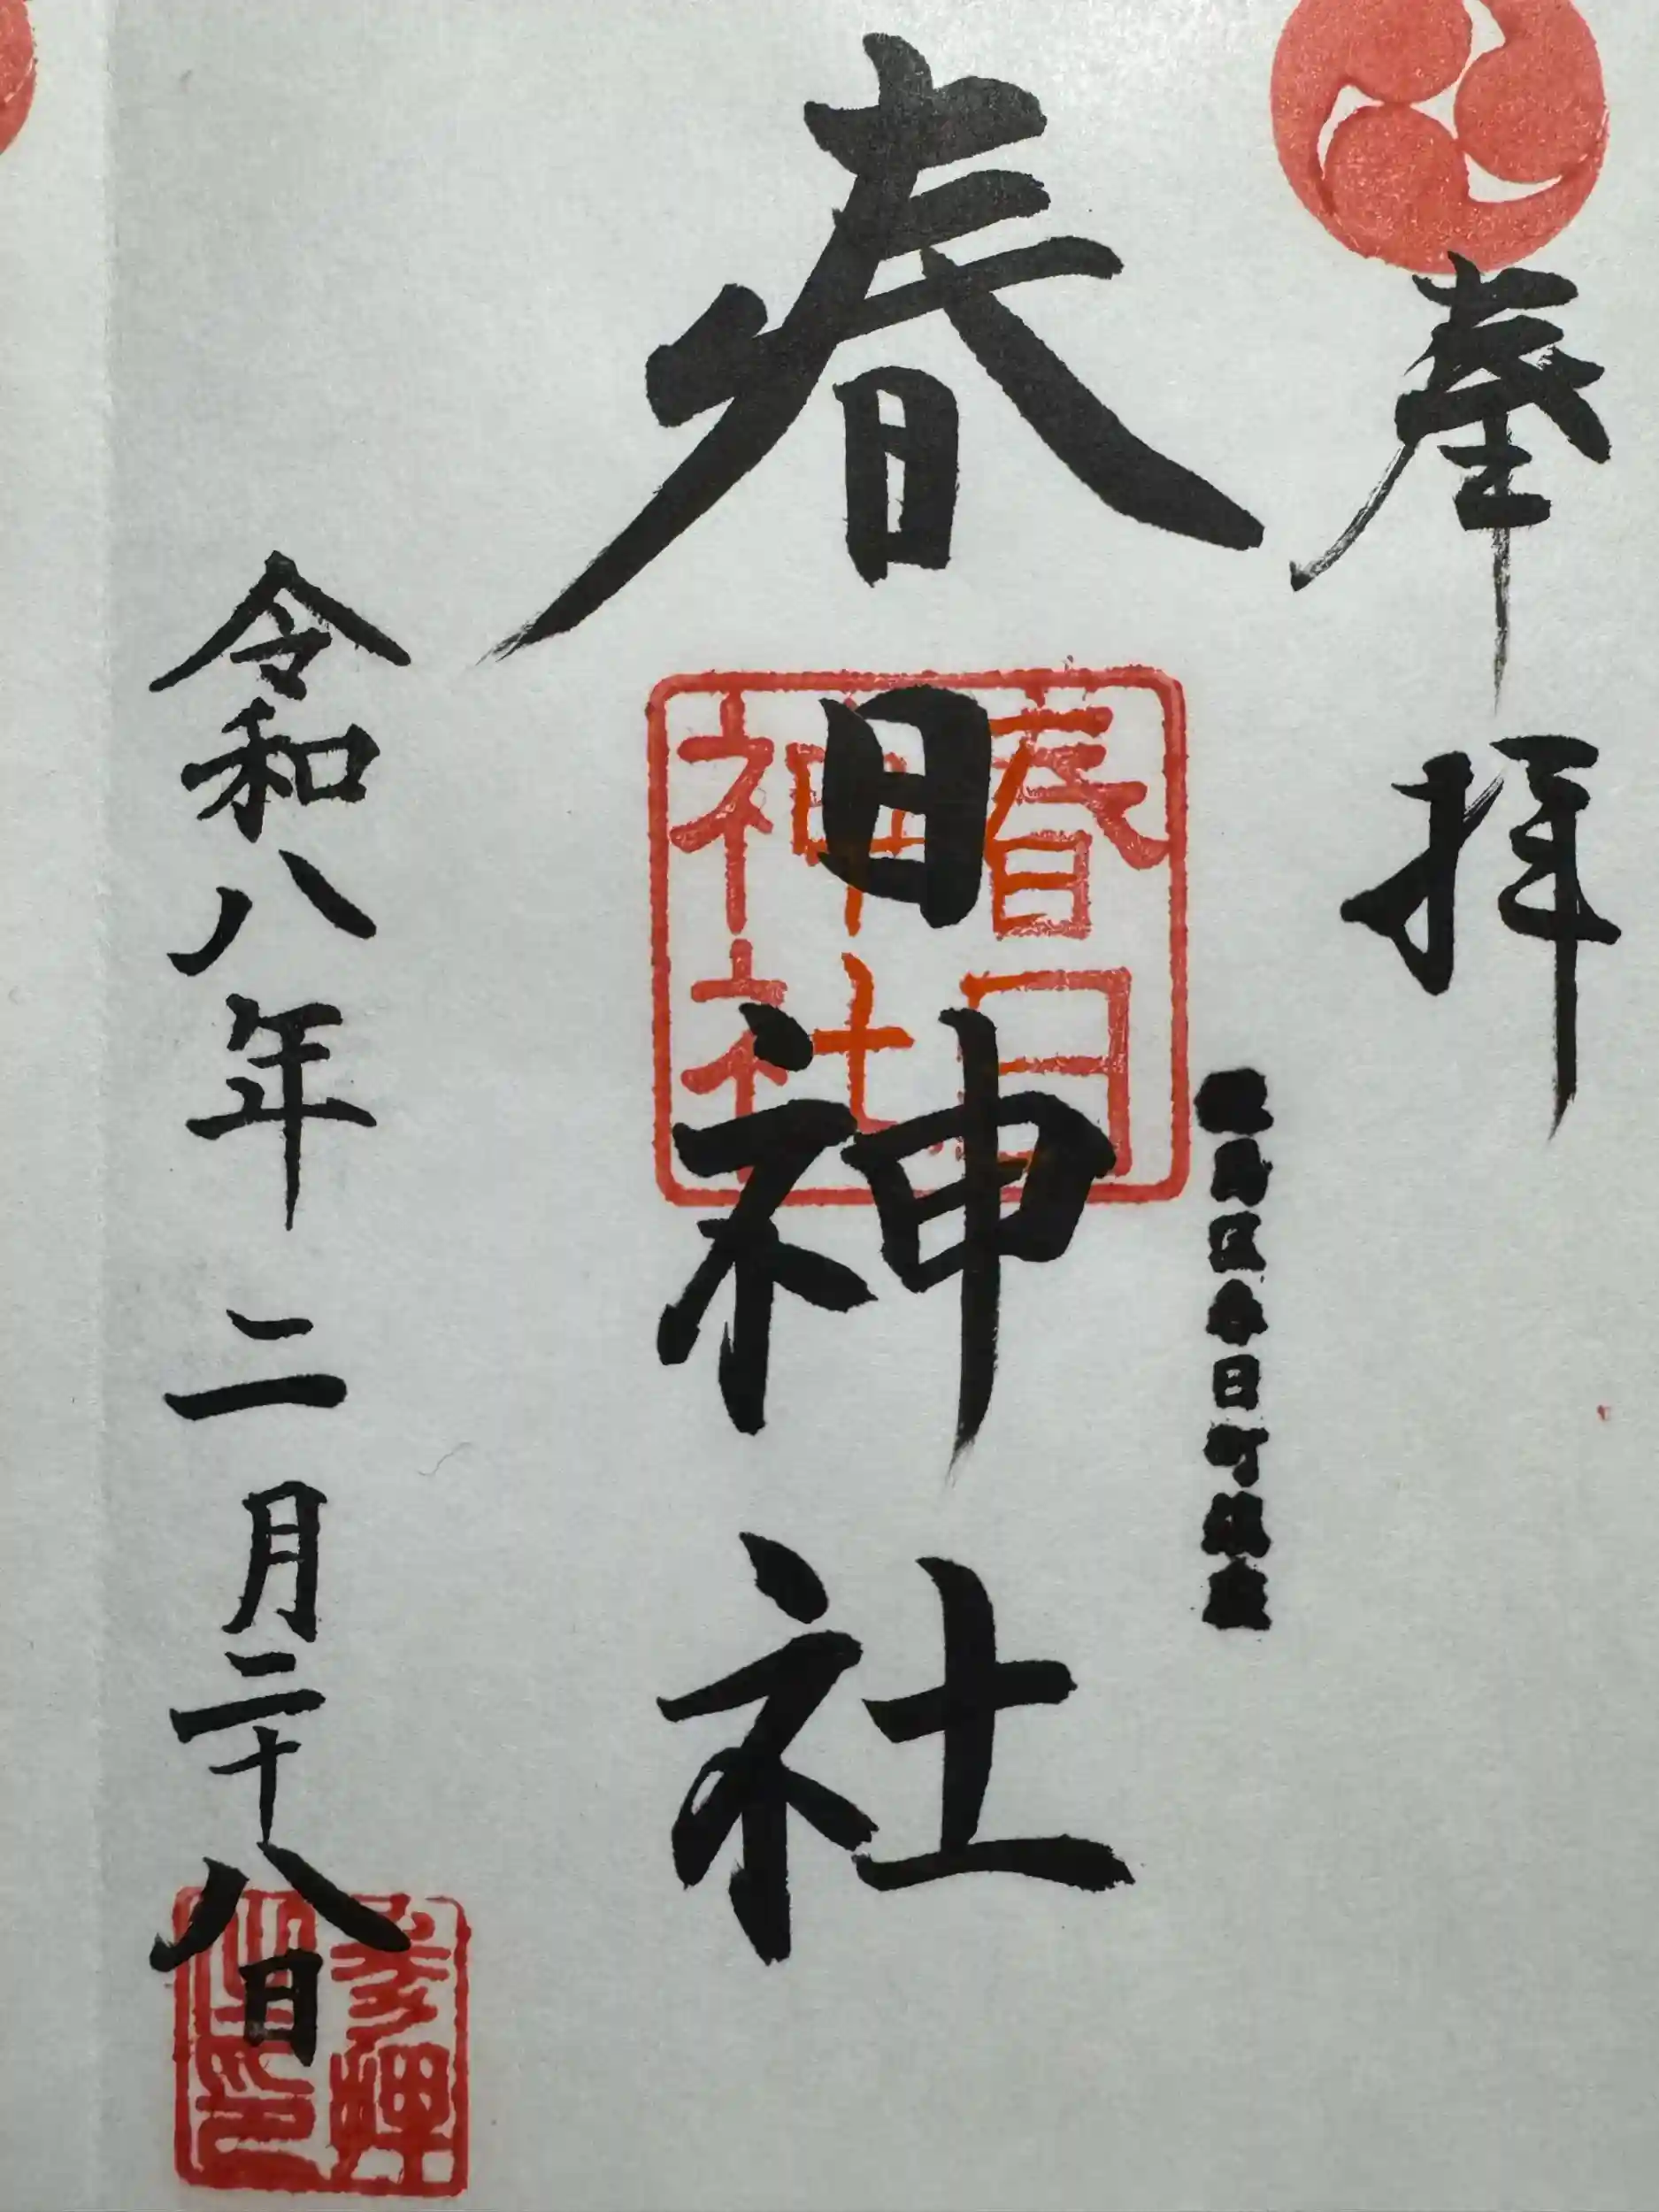 奉拝
春日町鎮座
春日神社
春日
神社
令和八年 二月二十八日
参拝